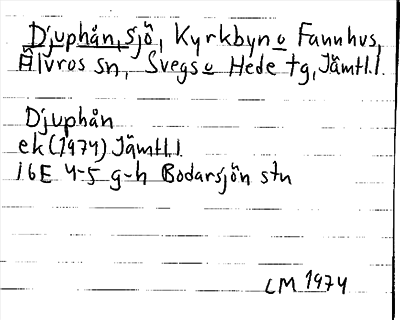 Djuphån, sjö, Kyrkbyn o Fannhus,
Älvros sn, Svegs o Hede tg, Jämtl.l.
Djuphån
ek (1974) Jämtl.l
16E 4-5 g-h Bodarsjön stn
LM 1974